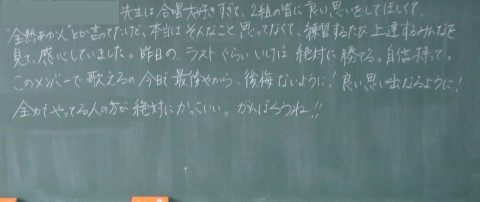 先生は合唱大好きすぎて、2組の皆に良い思いをしてほしくて、
"全然あかん"とか言ってたけど、本当はそんなこと思ってなくて、練習するたび上達するみんなを
見て、感心していました。昨日の、ラストぐらいいけば絶対に勝てる。自信持って。
このメンバーで歌えるの今日で最後やから、後悔ないように!良い思い出なるように!
全力でやってる人の方が絶対にかっこいい。がんばろうね!!